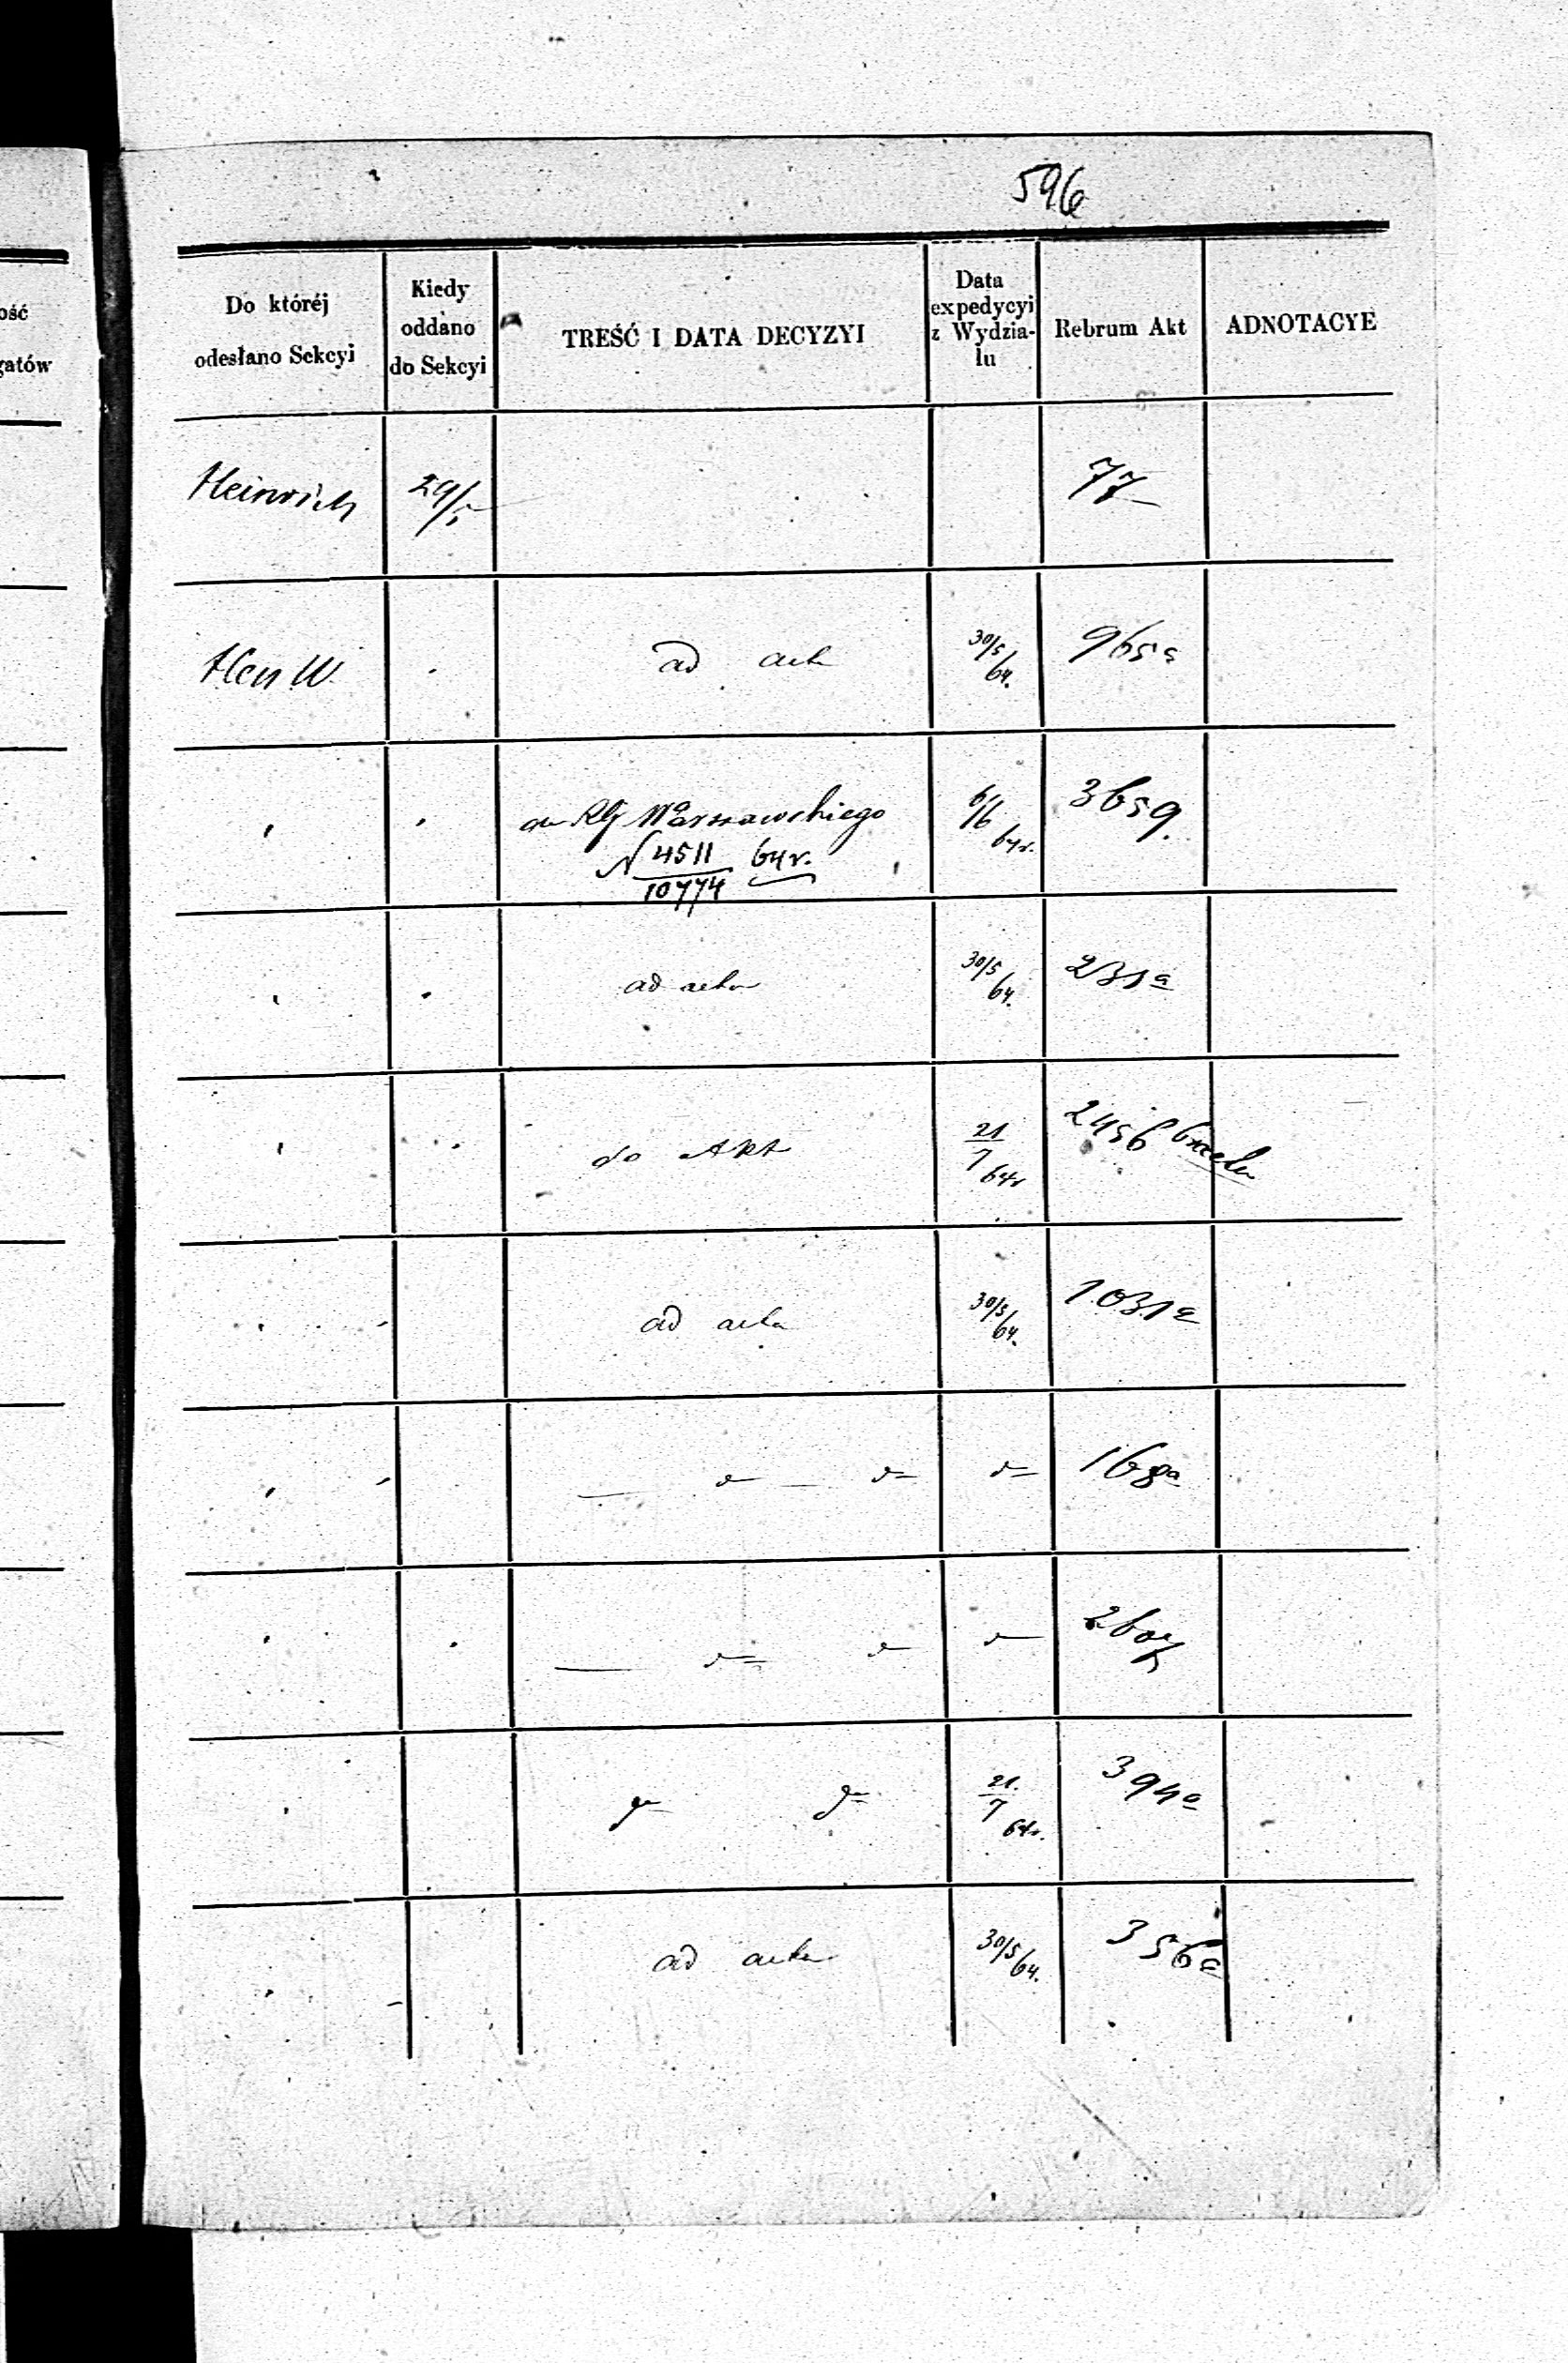 596
ość
gatów
Do któréj
odesłano Sekcyi
Kiedy
oddano
do Sekcyi
TREŚĆ I DATA DECYZYI
Data
expedycyi
z Wydzia-
łu
Rebrum Akt
ADNOTACYE
Heinrich 29/5 77
Hen W ad acta 30/5/64. 965a
RG Warszawskiego 6/6 64r. 3659.
N 4511/10774 64r.
ad acta 30/5/64. 231a
do Akt 21/7 64r 2456
ad acta 30/5/64. 1031a
168a
2607
21/7 64r. 394a
ad acta 30/5/64. 356a